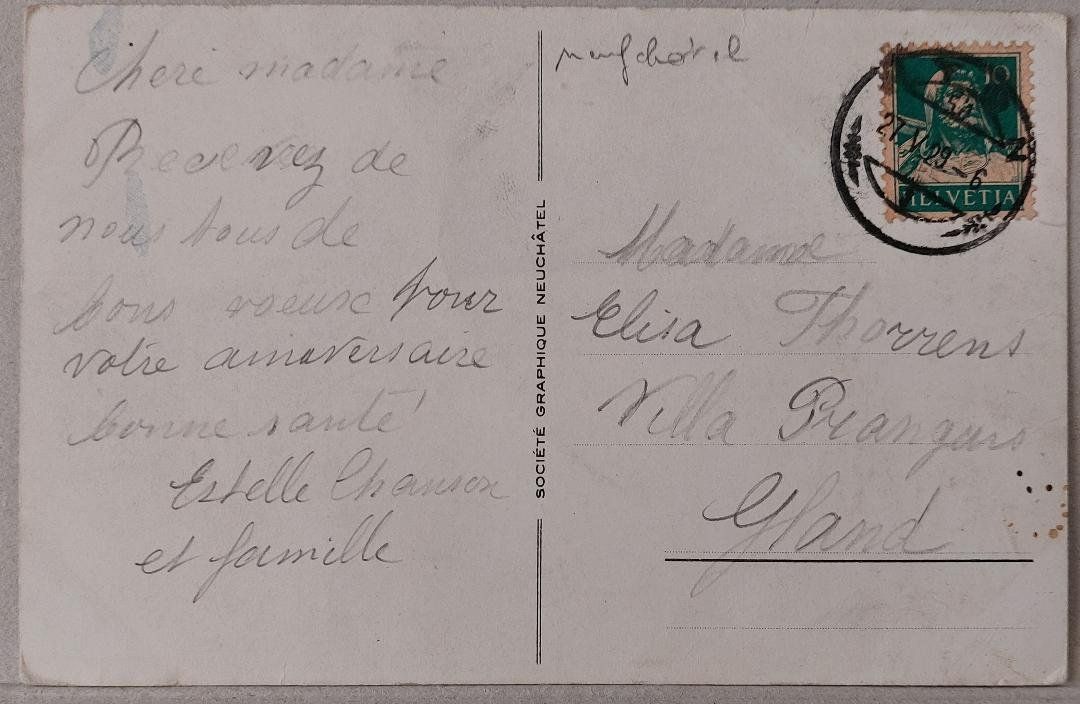 Cheri madame
Recevez de
nous tous de
bons voeux pour
votre anniversaire
bonne santé
Estelle Chanson
et famille
SOCIÉTÉ GRAPHIQUE NEUCHÂTEL
neufchâtel
10
27.V.29-6
HELVETIA
Madame
Elisa Thorrens
Villa Prangins
Gland